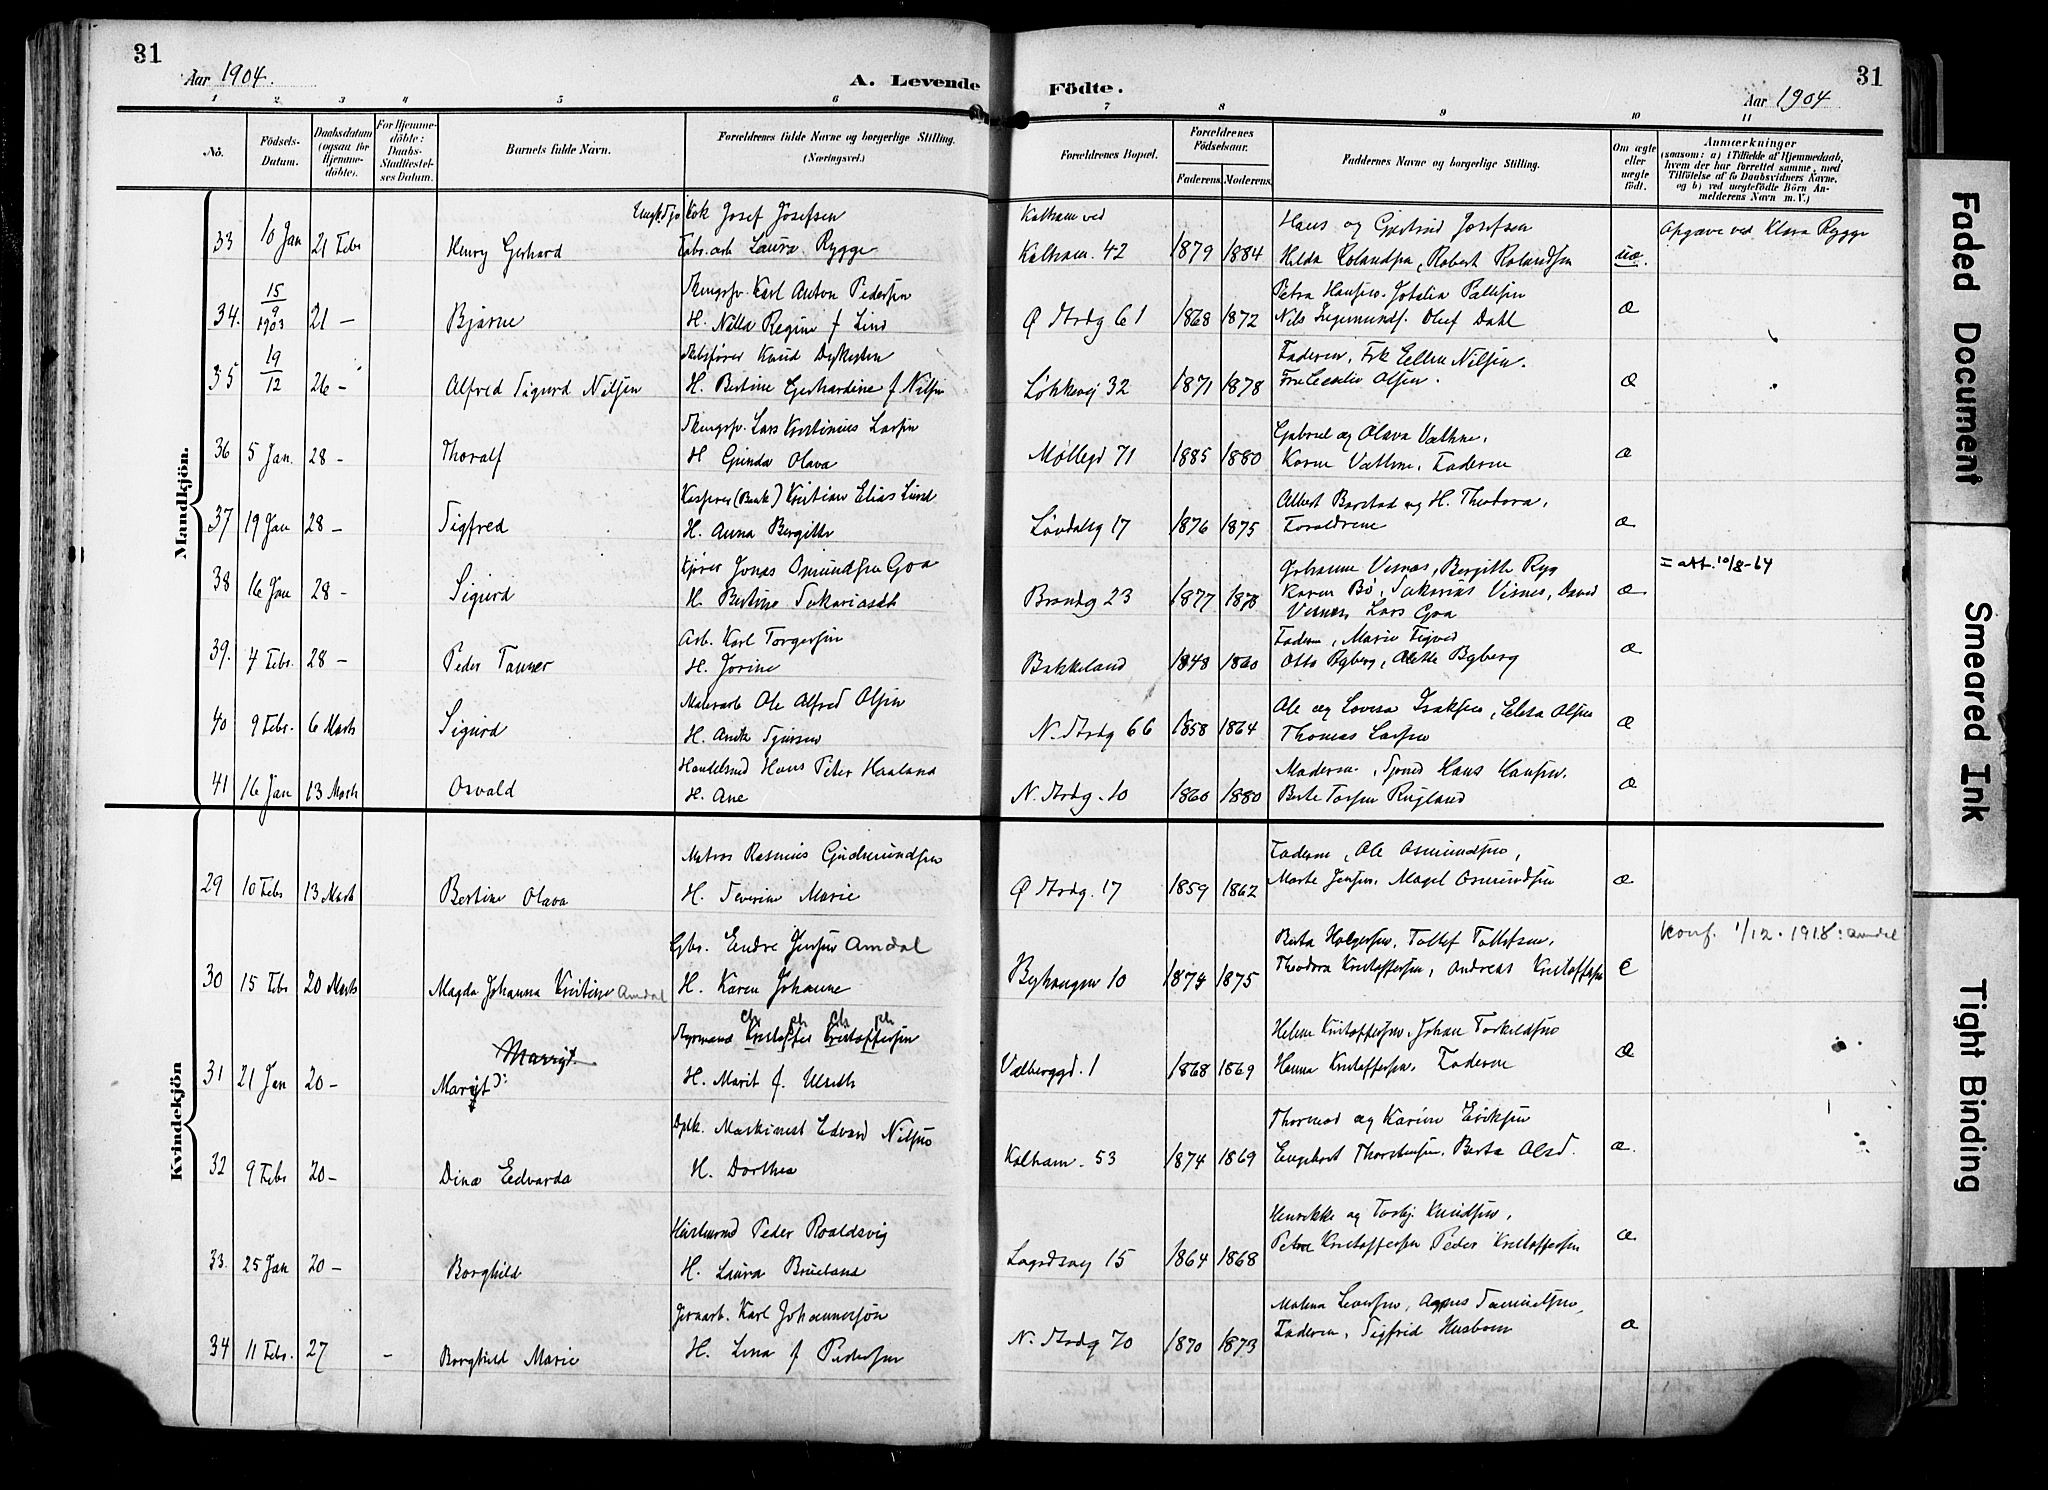 31
Aar 1904.
A. Levende Födte.
31
Aar 1904
1 2 3 4 5 6 7 8 9 10 11
No.
Födsels-Datum.
Daabsdatum (ogsaa for Hjemmedöbte).
For Hjemmedöbte: Daabs-Stadfæstelses Datum.
Barnets fulde Navn.
Forældrenes fulde Navne og borgerlige Stilling. (Næringsvei.)
Forældrenes Bopæl.
Forældrenes Födselsaar.
Faderens. Moderens.
Faddernes Navne og borgerlige Stilling.
Om ægte eller uægte födt.
Anmærkninger
(saasom: a) i Tilfælde af Hjemmedaab, hvem der har forrettet samme, med Tilföielse af to Daabsvidners Navne, og b) ved uægtefödte Börn Anmelderens Navn m. V.)
Mandkjön.
Kok Josef Josefsen Kalham ved Hans og Gjertrud Josefsen Opgave ved Klara Rygge
33 10 Jan 21 Febr Henry Gerhard Fabr.arb Laura Rygge Kalham. 42 1879 1884 Hilda Rolandsen, Robert Rolandsen uæ.
Karl Anton Pedersen Petra Hansen. Jotalia Pallesen
34. 15/9 1903 21 – Bjarne H. Nilla Regine f Lind Ø Strdg 61 1868 1872 Nils Ingemunds. Oluf Dahl æ
Knud Dykesten Faderen, Frk Ellen Nilsen.
35 19/12 26 – Alfred Sigurd Nilsen H. Bertine Gerhardine f. Nilsen Løkkevej 32 1871 1878 Fru Cecilie Olsen. æ
Lars Kristinius Larsen Gabriel og Olava Vathne,
36 5 Jan. 28 – Thoralf H Gunda Olava Møllegd 71 1885 1880 Karen Vathne, Faderen æ
Kasserer (Bank) Kristian Elias Lund Albert Barstad og H. Theodora,
37 19 Jan 28 – Sigfred H. Anna Bergitte Løvdalsg 17 1876 1875 Forældrene æ
Jonas Osmundsen Goa Johanne Visnes, Bergitte Ryg = att. 10/8-64
38 16 Jan 28 – Sigurd H. Bertine Sakariasdt Brandg 23 1877 1878 Karen Bø, Sakarias Visnes, David Visnes, Lars Goa æ
Arb. Karl Torgersen Faderen, Marie Tigved
39. 4 Febr. 28 – Peder Tanner H. Jorine Bakkeland 1848 1860 Otto Byberg, Alette Byberg æ
Malerarb Ole Alfred Olsen Ole og Lovisa Isaksen, Elisa Olsen
40 9 Febr. 6 Marts Sigurd H. N. Strdg 66 1858 1864 Thomas Larsen æ
Handelsmd Hans Peter Haaland Moderen, Hans Hansen.
41 16 Jan 13 Marts Osvald H. Ane N. Strdg. 10 1860 1880 Berte Torsen æ
Kvindekjön
Matros Rasmus Gudmundsen Faderen, Ole Osmundsen,
29 10 Febr 13 Marts Bertine Olava H. Severine Marie Ø Strdg. 17 1859 1862 Marte Jensen, Magel Osmundsen æ
Gbr. Endre Jensen Amdal Berta Holgersen, Tollef Tollefsen, Konf. 1/12. 1918: Amdal
30 15 Febr 20 Marts Magda Johanna Kristine Amdal H. Karen Johanne Byhaugen 10 1874 1875 Theodora Kristoffersen, Andreas Kristoffersen e
Ch ph Ch ph
Styrmand Kristoffer Kristoffersen Helene Kristoffersen, Johan Torkildsen
Margit.
31 21 Jan 20 – Margit H. Marit f. Ulseth Valberggd. 1 1868 1869 Hanna Kristoffersen, Faderen æ
Dplk. Maskinist Edvard Nilsen Thormod og Karine Eriksen
32 9 Febr 20 – Dina Edvarda H. Dorthea Kalham. 53 1874 1869 Engebret Thorstensen, Berta Olsd. æ.
Peder Roaldsvig Henrikke og Torbj. Knudsen,
33. 25 Jan 20 – Borghild H. Laura Brueland Lagdsvej 15 1864 1868 Petra Kristoffersen Peder Kristoffersen æ
Jernarb. Karl Johannesson Malena Iversen, Agnes Samuelsen,
34 11 Febr. 27 – Borghild Marie H. Lina f Pedersen N. Strdg 70 1870 1873 Faderen, Sigfrid Husbom æ
Faded Document
Smeared Ink
Tight Binding